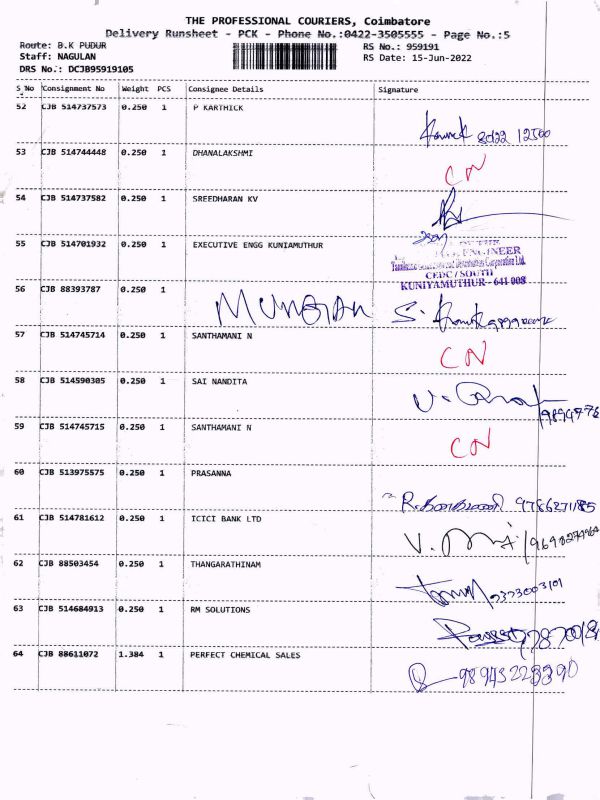 THE PROFESSIONAL COURIERS, Coimbatore
Delivery Runsheet - PCK - Phone No.:0422-3505555 - Page No.:5
Route: B.K PUDUR RS No.: 959191
Staff: NAGULAN RS Date: 15-Jun-2022
DRS No.: DCJB95919105
S No Consignment No Weight PCS Consignee Details Signature
52 CJB 514737573 0.250 1 P KARTHICK
53 CJB 514744448 0.250 1 DHANALAKSHMI
CN
54 CJB 514737582 0.250 1 SREEDHARAN KV
55 CJB 514701932 0.250 1 EXECUTIVE ENGG KUNIAMUTHUR
ENGINEER
CEDC / SOUTH
KUNIYAMUTHUR - 641 008
56 CJB 88393787 0.250 1
MURUGAN S.
57 CJB 514745714 0.250 1 SANTHAMANI N
CN
58 CJB 514590305 0.250 1 SAI NANDITA
59 CJB 514745715 0.250 1 SANTHAMANI N
CN
60 CJB 513975575 0.250 1 PRASANNA
9786271185
61 CJB 514781612 0.250 1 ICICI BANK LTD
62 CJB 88503454 0.250 1 THANGARATHINAM
63 CJB 514684913 0.250 1 RM SOLUTIONS
64 CJB 88611072 1.384 1 PERFECT CHEMICAL SALES